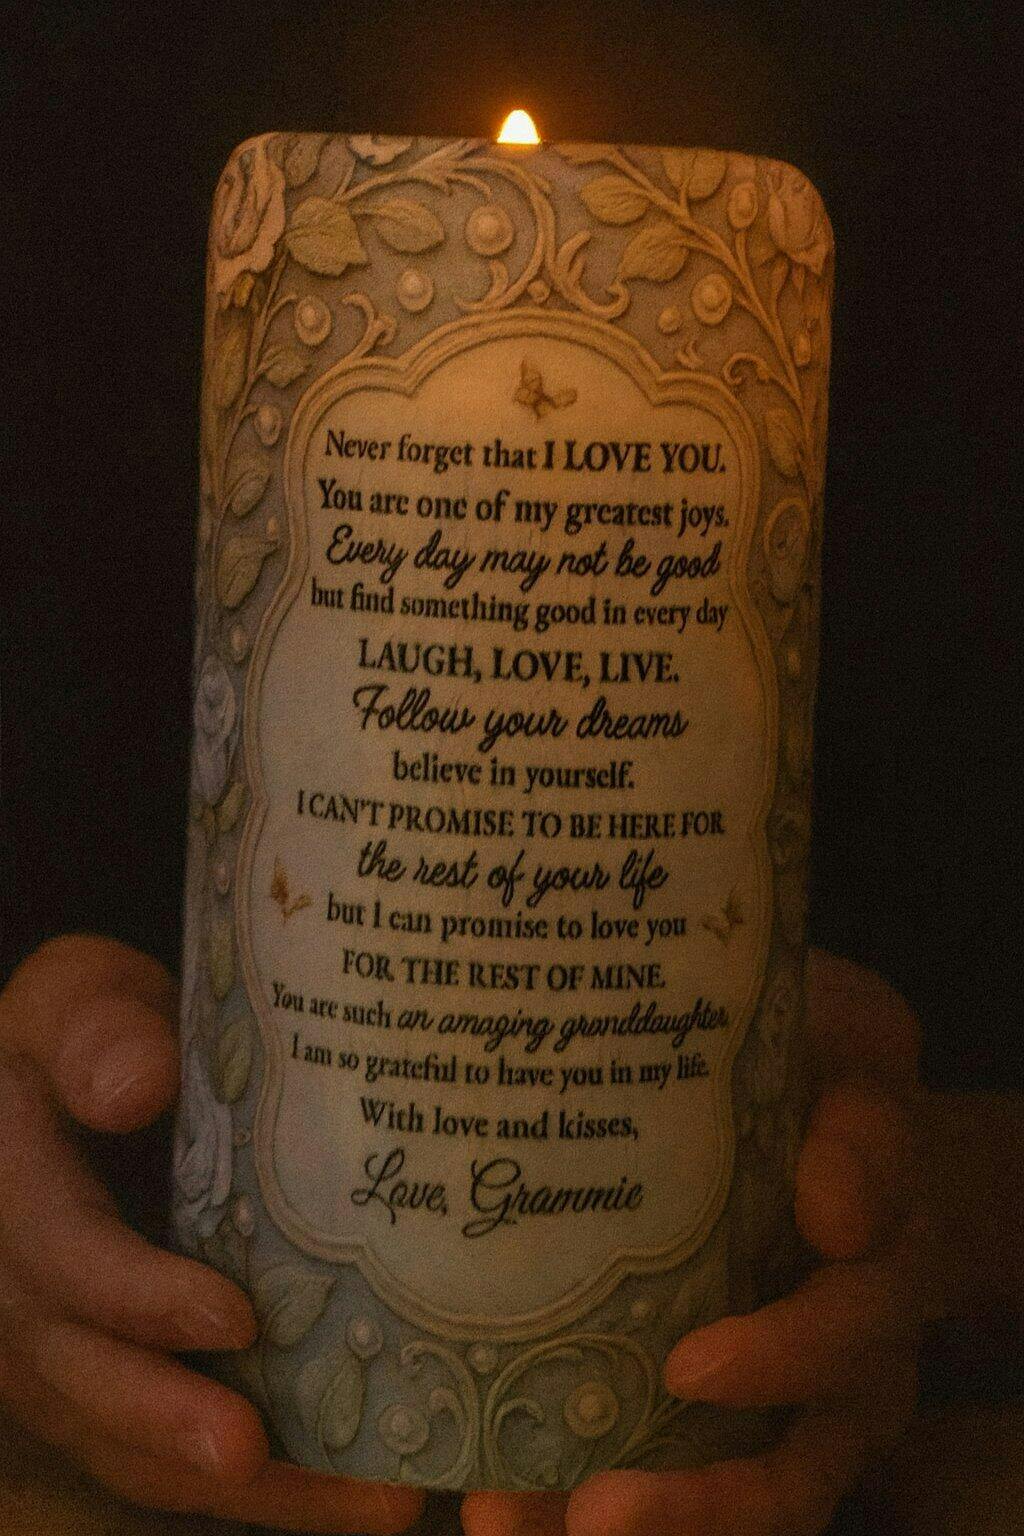 Never forget that I LOVE YOU.
You are one of my greatest joys.
Every day may not be good
but find something good in every day
LAUGH, LOVE, LIVE.
Follow your dreams
believe in yourself.
I CAN'T PROMISE TO BE HERE FOR
the rest of your life
but I can promise to love you
FOR THE REST OF MINE.
You are such an amazing granddaughter.
I am so grateful to have you in my life.
With love and kisses,
Love, Grammie